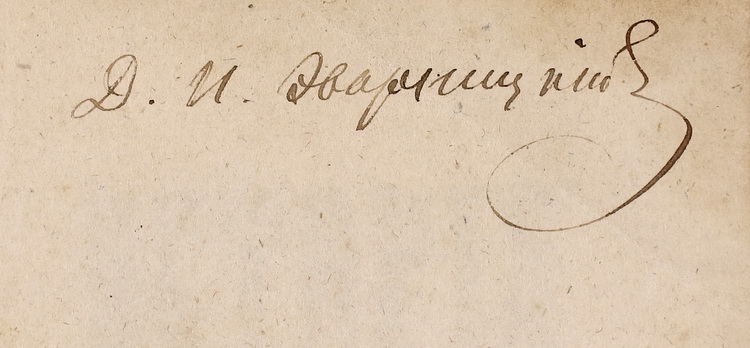 Д. И. Эварницкій